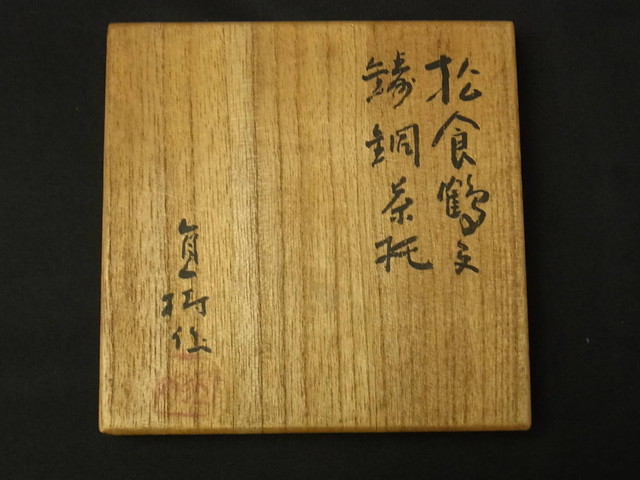 松食鶴文
鋳銅茶托
作